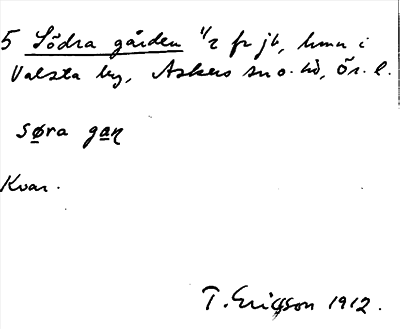 5 Södra gården 1/2 fr jb, hmn i
Valsta by, Askers sn o. hd, Ör. l.
søra gaɳ
Kvar.
T. Ericsson 1912.